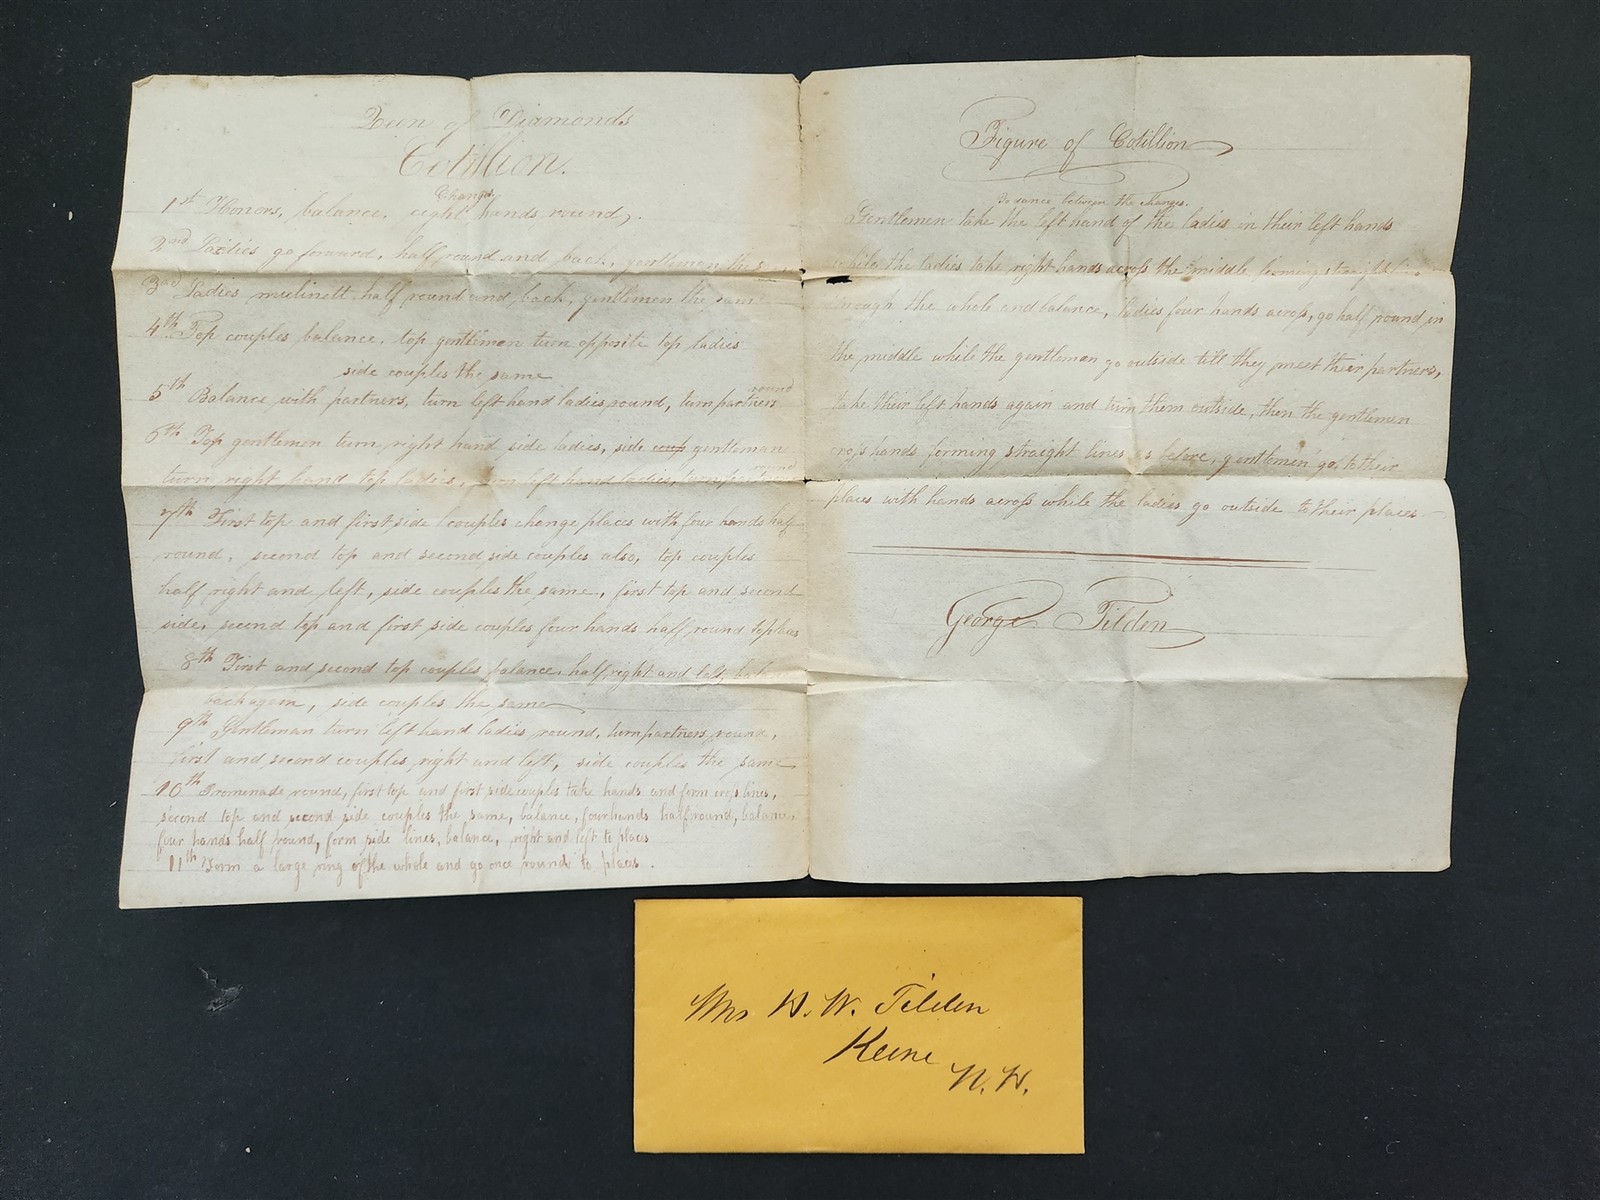 Queen of Diamonds
Cotillion.
Changes
1st Honors, balance, eight hands round,
2nd Ladies go forward, half round and back, gentlemen the s
3rd Ladies mulinett half round and back, gentlemen the same
4th Top couples balance, top gentleman turn opposite top ladies
side couples the same
5th Balance with partners, turn left hand ladies round, turn partners round
6th Top gentlemen turn right hand side ladies, side coup gentleman
turn right hand top ladies, turn left hand ladies, turn partners round
7th First top and first side couples change places with four hands half
round, second top and second side couples also, top couples
half right and left, side couples the same, first top and second
side, second top and first side couples four hands half round to places
8th First and second top couples balance, half right and left,
back again, side couples the same
9th Gentleman turn left hand ladies round, turn partners round,
first and second couples right and left, side couples the same
10th Promenade round, first top and first side couples take hands and form cross lines,
second top and second side couples the same, balance, four hands half round, balance,
four hands half round, form side lines, balance, right and left to places
11th Form a large ring of the whole and go once round to places.
Figure of Cotillion
To dance between the changes.
Gentlemen take the left hand of the ladies in their left hands
while the ladies take right hands across the middle forming straight lines
through the whole and balance, ladies four hands across, go half round in
the middle while the gentleman go outside till they meet their partners,
take their left hands again and turn them outside, then the gentlemen
cross hands forming straight lines as before, gentlemen go to their
places with hands across while the ladies go outside to their places
George Tilden
Mrs H. W. Tilden
Keene
N. H.